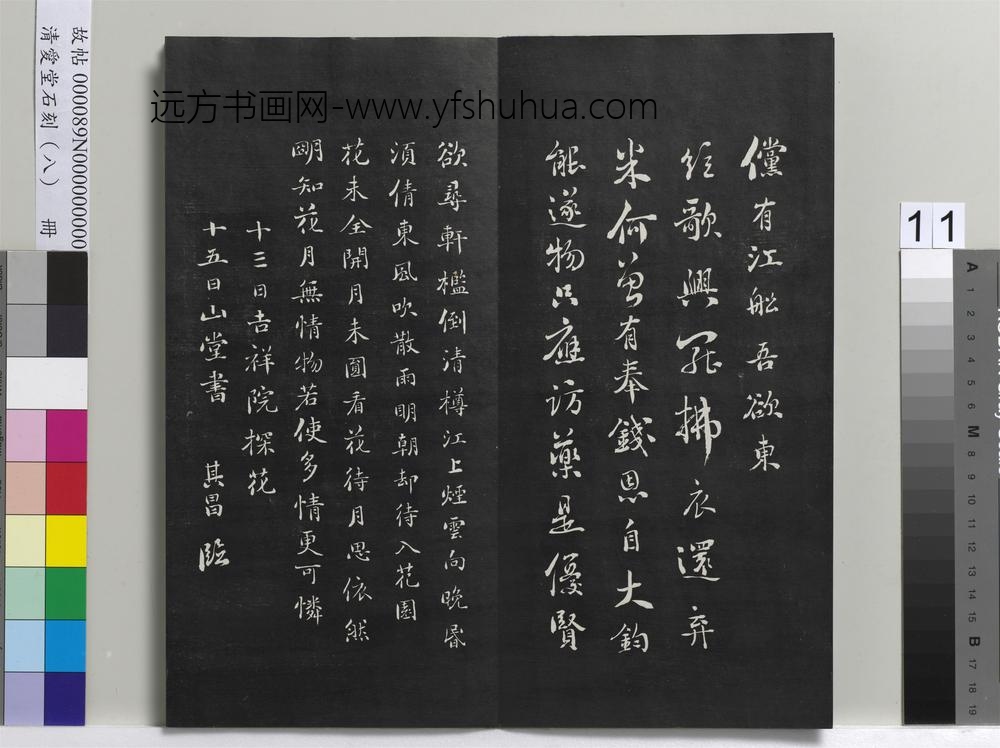 故帖 000089N000000000
清愛堂石刻(八) 冊
远方书画网-www.yfshuhua.com
儻有江船吾欲東
短歌興罷拂衣還弃
米何曾有奉錢恩自大鈞
能遂物只應訪藥是優賢
欲尋軒檻倒清樽江上煙雲向晚昏
須倩東風吹散雨明朝却待入花園
花未全開月未圓看花待月思依然
明知花月無情物若使多情更可憐
十三日吉祥院探花
十五日山堂書 其昌臨
11
A 1 2 3 4 5 6 M 8 9 10 11 12 13 14 15 B 17 18 19